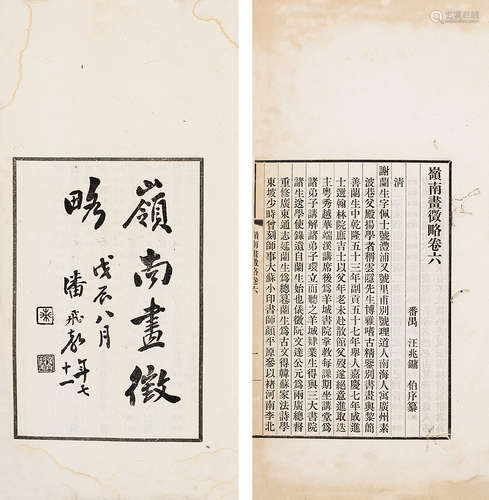 嶺南畫徵
略
戊辰八月
潘飛聲年七
十一
嶺南畫徵略卷六
番禺 汪兆鏞 伯序纂
清
謝蘭生字佩士號澧浦又號里甫別號理道人南海人寓廣州素
波巷父殿揚學者稱雲隱先生博雅嗜古精鑒別書畫與黎簡
善蘭生中乾隆五十三年副貢五十七年舉人嘉慶七年成進
士選翰林院庶吉士以父年老未赴散館父歿遂絕意進取迭
主粵秀越華端溪講席後爲羊城書院掌教每課期坐講堂爲
諸弟子講解諸弟子環立而聽之羊城肄業生得與三大書院
諸生送學使錄遺自蘭生始也儀徵阮文達公元爲兩廣總督
重修廣東通志延蘭生爲總纂蘭生爲古文得韓蘇家法詩學
東坡少時曾刻師事大蘇小印書師顏平原參以褚河南李北
嶺南畫徵略卷六